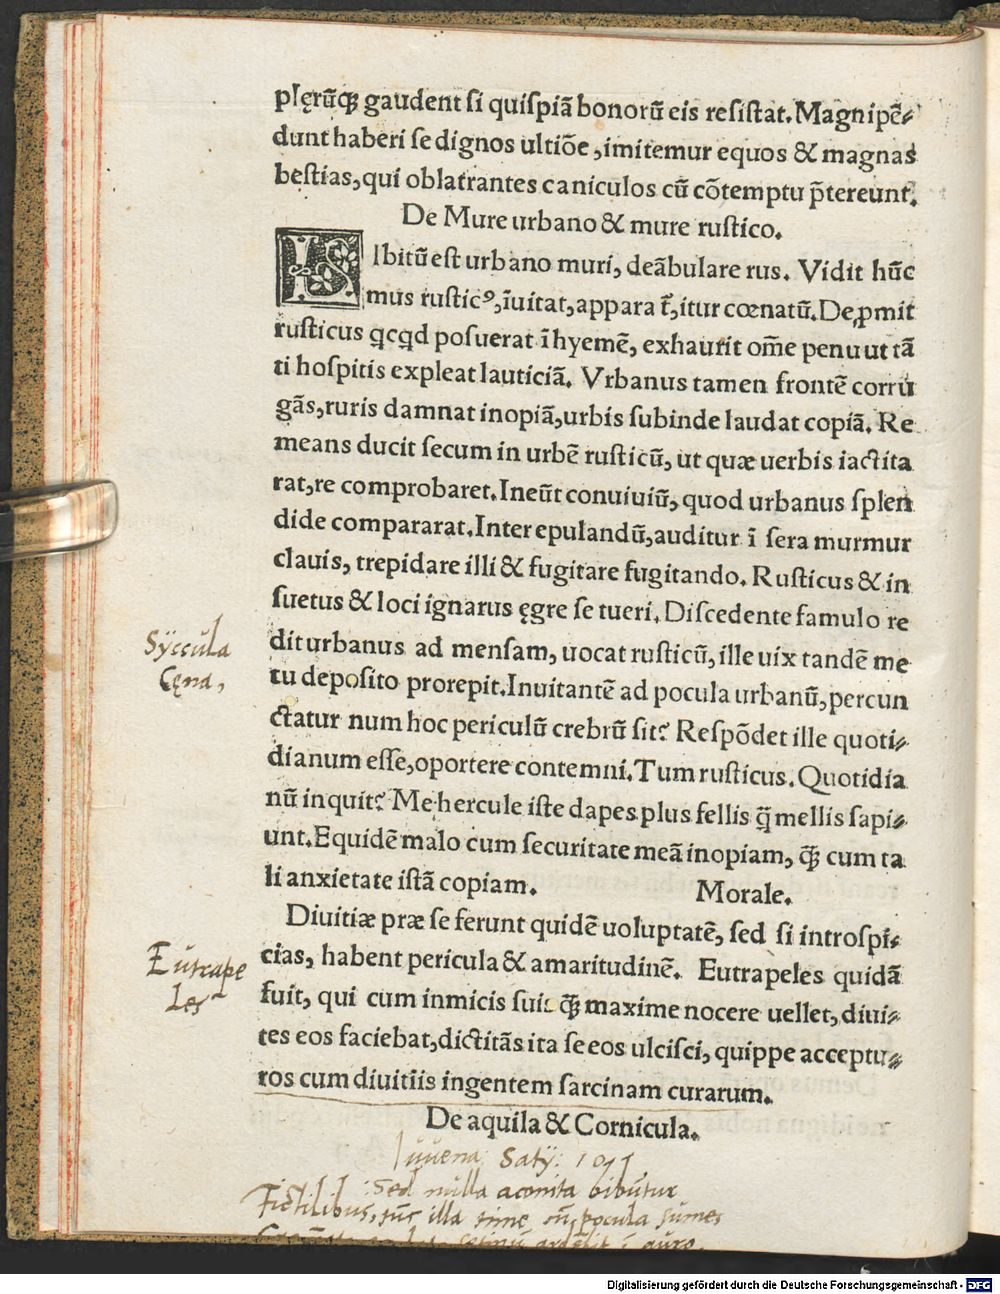 plęrũq; gaudent si quispiã bonorũ eis resistat. Magnipẽ-
dunt haberi se dignos ultiõe, imitemur equos & magnas
bestias, qui oblatrantes caniculos cũ cõtemptu p̃tereunt.
De Mure urbano & mure rustico.
IBitũ est urbano muri, deãbulare rus. Vidit hũc
mus rusticꝰ, ĩuitat, apparat̃, itur cœnatũ. Deꝓmit
rusticus qcqd posuerat ĩ hyemẽ, exhaurit om̃e penu ut tã
ti hospitis expleat lauticiã. Vrbanus tamen frontẽ corru
gãs, ruris damnat inopiã, urbis subinde laudat copiã. Re
means ducit secum in urbẽ rusticũ, ut quæ uerbis iactita
rat, re comprobaret. Ineũt conuiuiũ, quod urbanus splen
dide compararat. Inter epulandũ, auditur ĩ sera murmur
clauis, trepidare illi & fugitare fugitando. Rusticus & in
suetus & loci ignarus ęgre se tueri. Discedente famulo re
dit urbanus ad mensam, uocat rusticũ, ille uix tandẽ me
tu deposito prorepit. Inuitantẽ ad pocula urbanũ, percun
ctatur num hoc periculũ crebrũ sit? Respõdet ille quoti-
dianum esse, oportere contemni. Tum rusticus. Quotidia
nũ inquit? Mehercule iste dapes plus fellis q̃ mellis sapi-
unt. Equidẽ malo cum securitate meã inopiam, q̃ cum ta
li anxietate istã copiam. Morale.
Diuitiæ præ se ferunt quidẽ uoluptatẽ, sed si introspi-
cias, habent pericula & amaritudinẽ. Eutrapeles quidã
fuit, qui cum inmicis suis q̃ maxime nocere uellet, diui-
tes eos faciebat, dictitãs ita se eos ulcisci, quippe acceptu-
ros cum diuitiis ingentem sarcinam curarum.
De aquila & Cornicula.
Syccula
Cęna,
Eutrape
les
Iuuena: Saty: 10
Sed nulla aconita bibuntur
Fictilibus, tũc illa time cũ pocula sumes
setinũ ardebit ĩ auro.
Digitalisierung gefördert durch die Deutsche Forschungsgemeinschaft - DFG